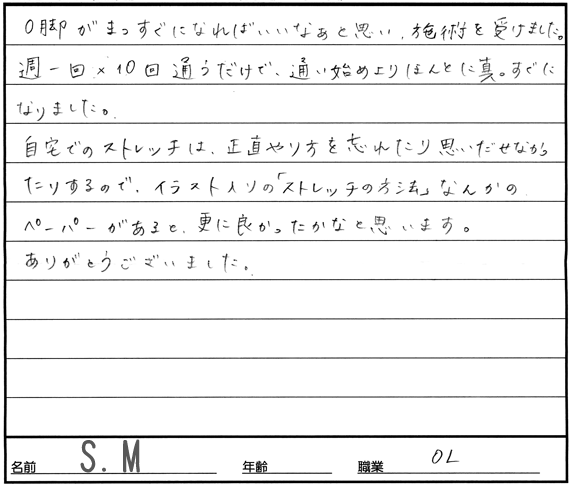 O脚がまっすぐになればいいなぁと思い、施術を受けました。
週一回×10回通うだけで、通い始めよりほんとに真。すぐに
なりました。
自宅でのストレッチは、正直やり方を忘れたり思いだせなかっ
たりするので、イラスト入りの「ストレッチの方法」なんかの
ペーパーがあると、更に良かったかなと思います。
ありがとうございました。
名前 S.M 年齢 職業 OL